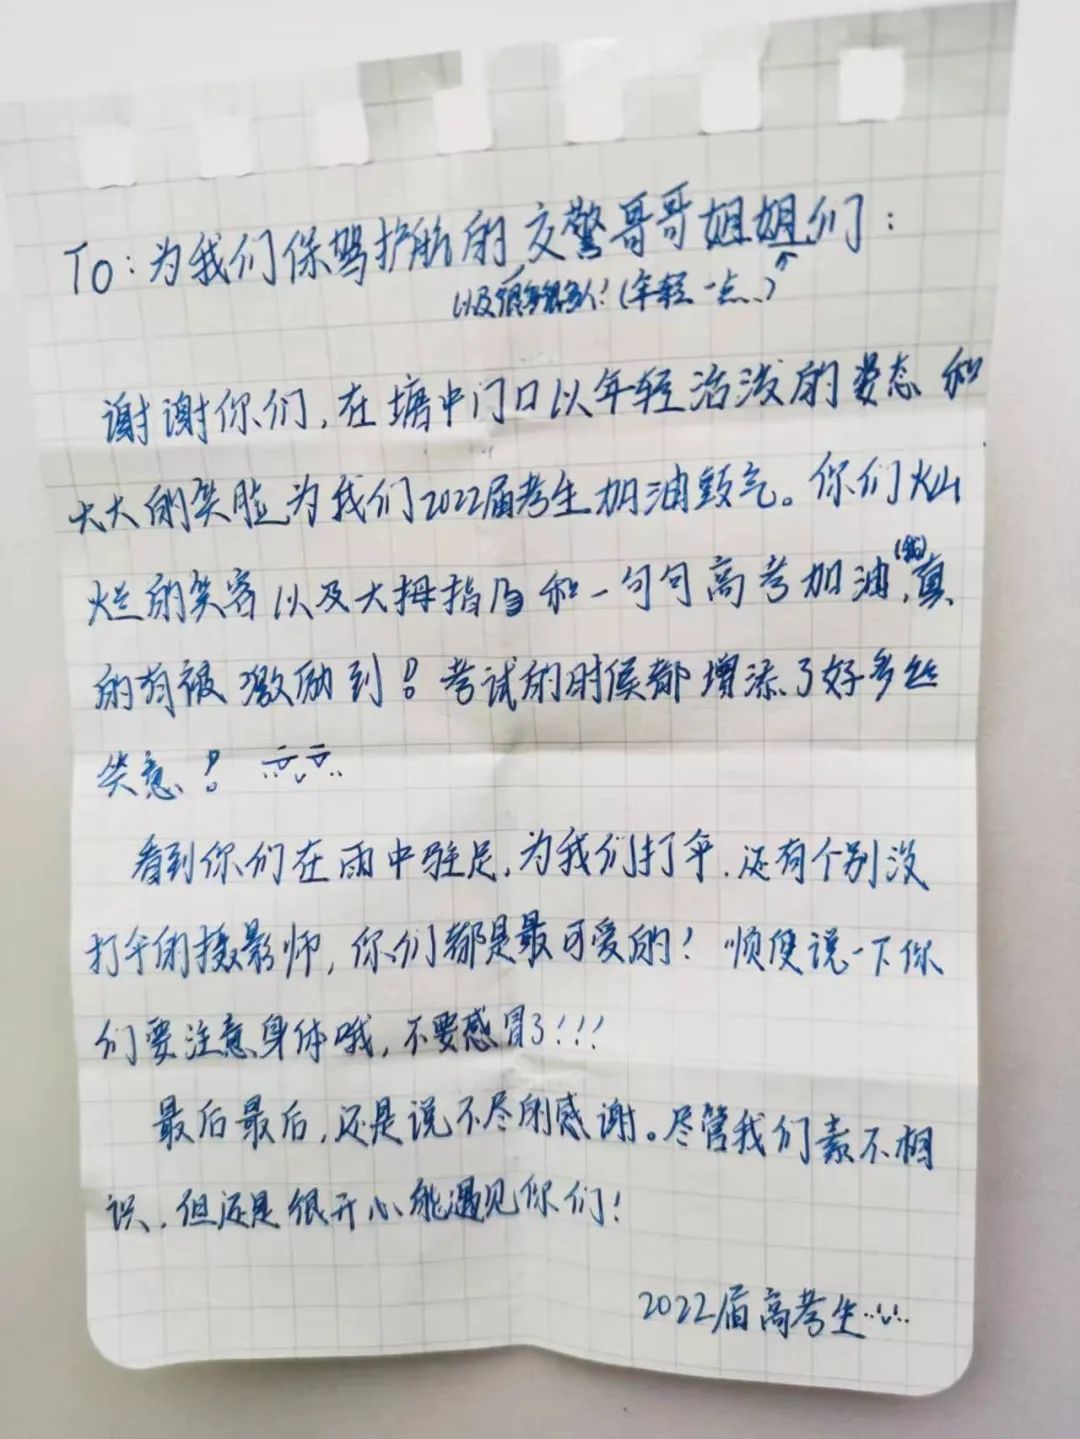 To：为我们保驾护航的交警哥哥姐姐们：
以及很多很多人！（年轻一点..）↑
谢谢你们，在塘中门口以年轻活泼的姿态和
大大的笑脸为我们2022届考生加油鼓气。你们灿
烂的笑容以及大拇指和一句句高考加油，真
的有被激励到！考试的时候都增添了好多丝
笑意！
看到你们在雨中驻足，为我们打伞，还有个别没
打伞的摄影师，你们都是最可爱的！顺便说一下你
们要注意身体哦，不要感冒了！！！
最后最后，还是说不尽的感谢。尽管我们素不相
识，但还是很开心能遇见你们！
2022届高考生